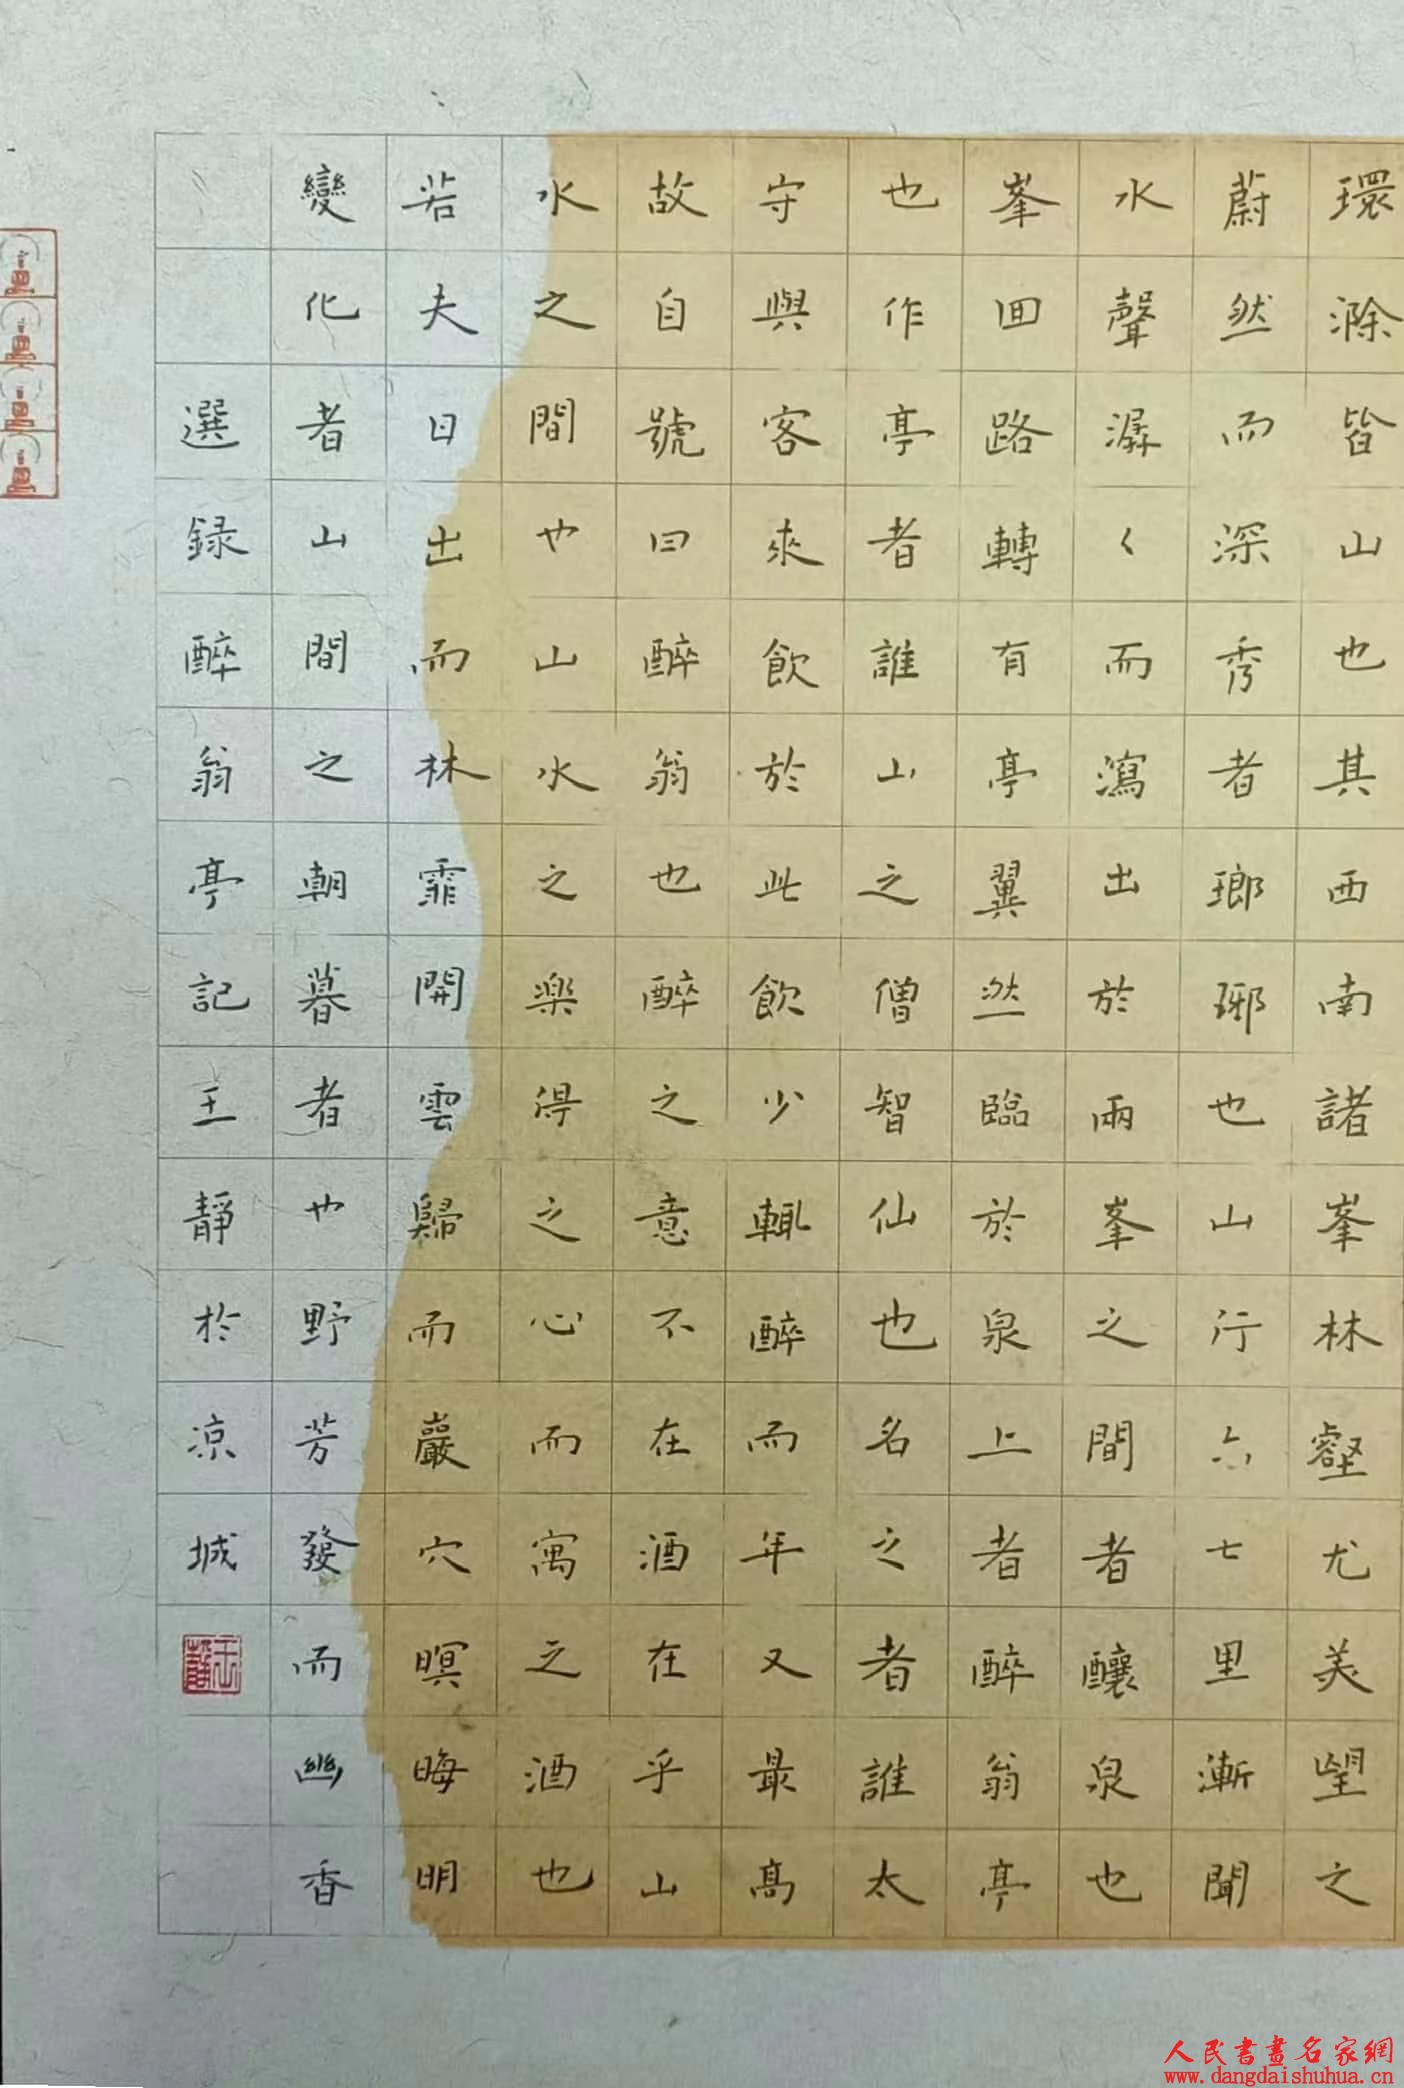 環滁皆山也其西南諸峯林壑尤美望之
蔚然而深秀者瑯琊也山行六七里漸聞
水聲潺〻而瀉出於兩峯之間者釀泉也
峯回路轉有亭翼然臨於泉上者醉翁亭
也作亭者誰山之僧智仙也名之者誰太
守與客來飲於此飲少輒醉而年又最高
故自號曰醉翁也醉之意不在酒在乎山
水之間也山水之楽得之心而寓之酒也
若夫日出而林霏開雲歸而巖穴暝晦明
變化者山間之朝暮者也野芳發而幽香
選録醉翁亭記王靜於涼城
人民書畫名家網
www.dangdaishuhua.cn